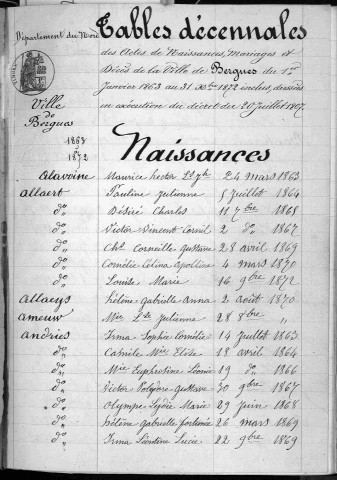 Département du Nord
Tables décennales
des Actes de Naissances, Mariages et
Décès de la Ville de Bergues du 1er
Janvier 1863 au 31 Xbre 1872 inclus, dressées
en exécution du décret du 20 juillet 1807.
Ville
de
Bergues
1863
à
1872
Naissances
Alavoine Maurice hector Ls Jh 24 mars 1863
Allaert Pauline Julienne 5 Juillet 1864
do Désiré Charles 11 7bre 1865
do Victor Vincent Cornil 2 do 1867
do Ch. Corneille Gustave 28 avril 1869
do Cornélie Célina Apolline 4 mars 1870
do Louise Marie 16 9bre 1872
Allaeys hélène Gabrielle Anna 2 Août 1870
Ameuw Mie Lse Julienne 28 8bre "
Andries Irma Sophie Cornélie 14 Juillet 1863
do Camile Mie Elise 18 avril 1864
do Mie Euphrosine Léonie do 1866
do Victor Polydore Gustave 30 9bre 1867
do Olympe Lydie Marie 29 juin 1868
do hélène Gabrielle fortunée 26 mars 1869
do Irma Léontine Lucie 22 9bre 1869